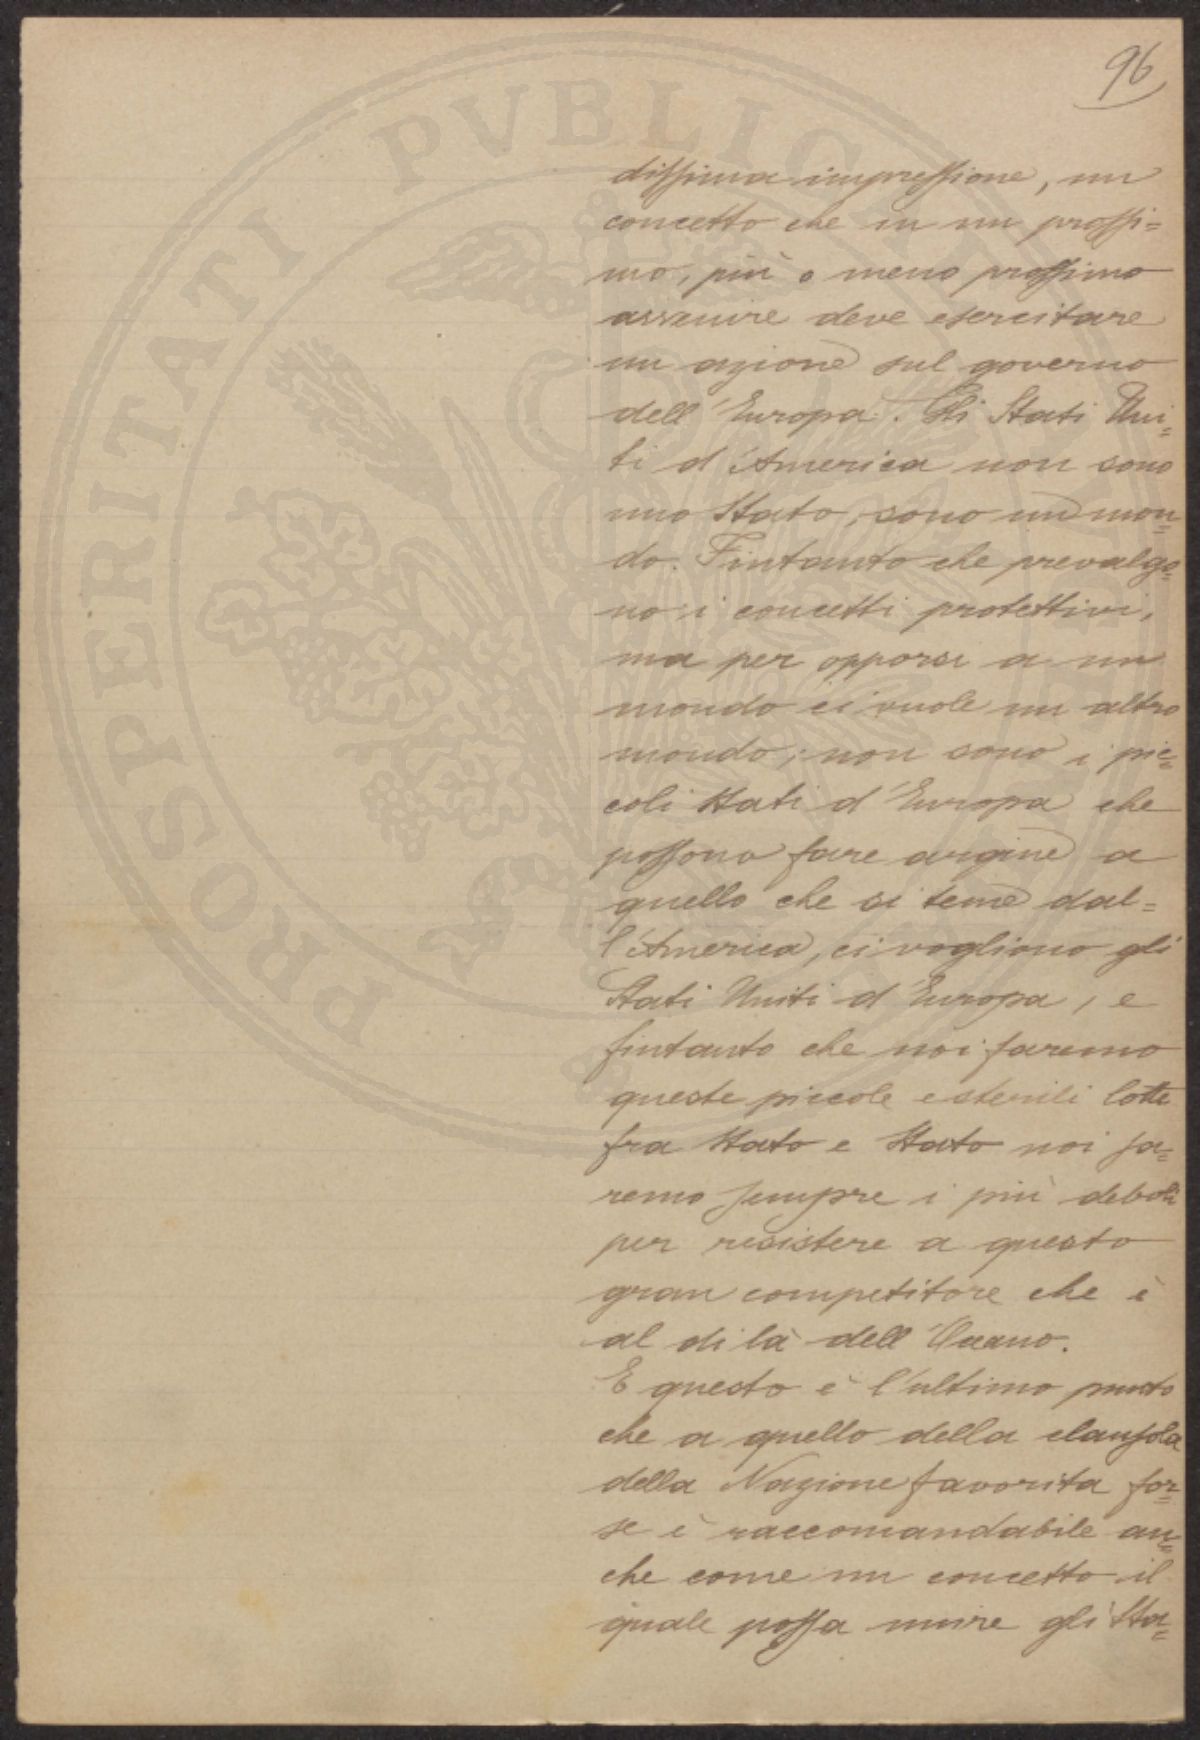 96
dissima impressione, un
concetto che in un prossi=
mo, più o meno prossimo
avvenire deve esercitare
un azione sul governo
dell'Europa. Gli Stati Uni=
ti d'America non sono
uno Stato, sono un mon=
do. Fintanto che prevalgo=
no i concetti protettivi,
ma per opporsi a un
mondo ci vuole un altro
mondo; non sono i pic=
coli Stati d'Europa che
possono fare argine a
quello che si teme dal=
l'America, ci vogliono gli
Stati Uniti d'Europa, e
fintanto che noi faremo
queste piccole e sterili lotte
fra Stato e Stato noi sa=
remo sempre i più deboli
per resistere a questo
gran competitore che è
al di là dell'Oceano.
E questo è l'ultimo punto
che a quello della clausola
della Nazione favorita for=
se è raccomandabile an=
che come un concetto il
quale possa unire gli Sta=
PROSPERITATI PVBLICAE